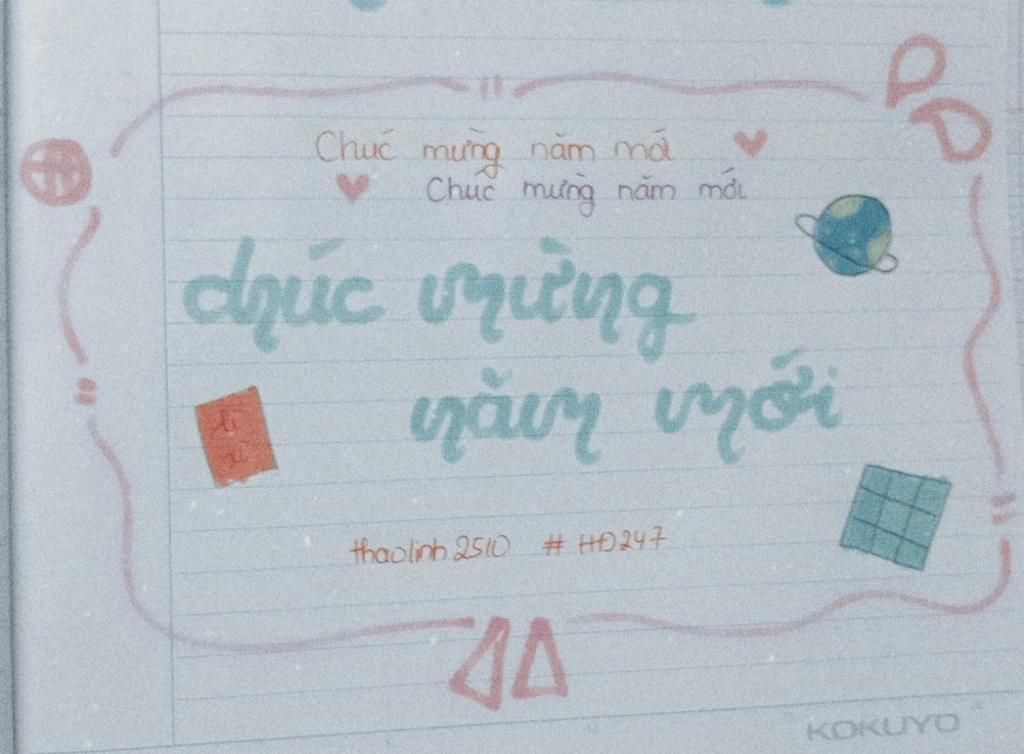 Chúc mừng năm mới
Chúc mừng năm mới
chúc mừng
năm mới
lì
xì
thaolinh2510 # HĐ247
KOKUYO